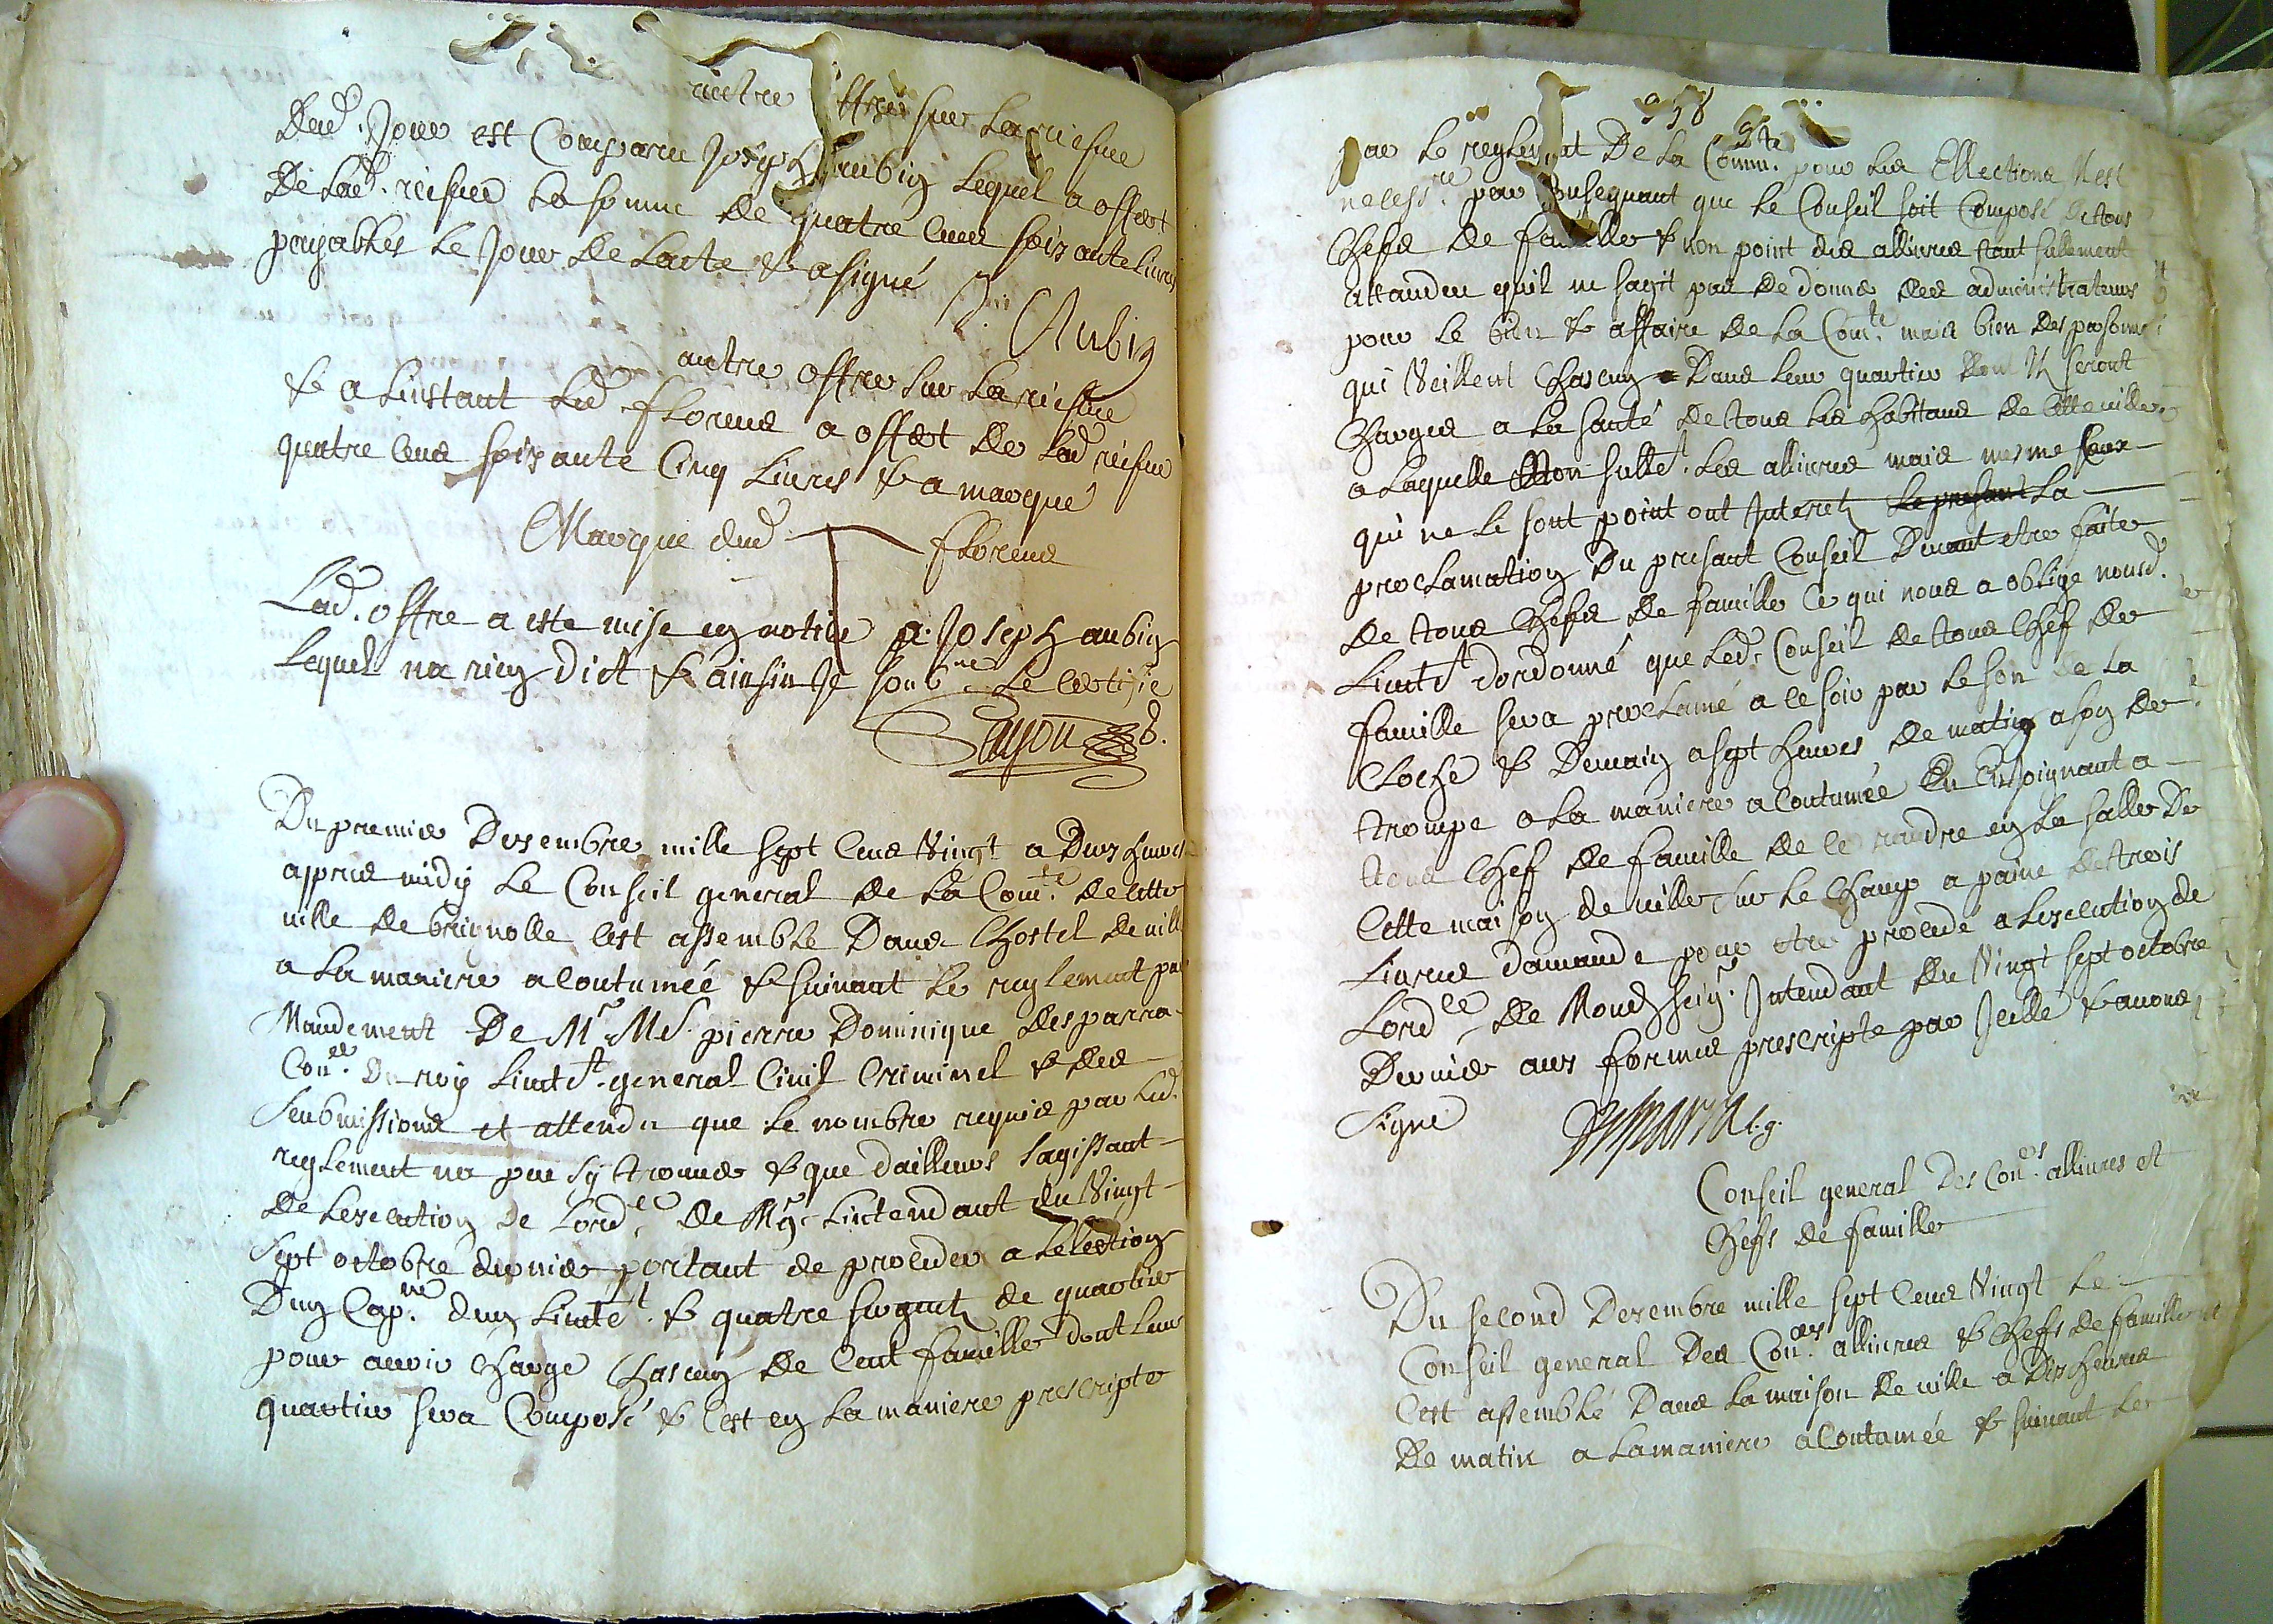 autre offre sur la reisve
Dud. Jour est Comparu Joseph aubin Lequel a offert
De Lad. reisve La somme de quatre cens soixante Livres
payables le Jour de Lacte & a signé
J. Aubin
autre offre sur La reisve
& a Linstant Led florens a offert de Lad reisve
quatre cens soixante Cinq Livres & a marqué
Marque dud florens
Lad. offre a este mise en notice a Joseph aubin
Lequel na rien dict & ainsin Je soub.ne Le certifie
Du premier Desembre mille sept cens Vingt a Deux heures
apres midy Le Conseil general de La Com.te de cette
ville de brignolle cest assemble Dans Lhostel de ville
a La maniere acoutumée & suivant le reglement par
Mandement De Mr Me. pierre Dominique desparra
Con.er Du roy Lieute.t general Civil Criminel & des
Soubmissions et attendu que le nombre requis par Led.
reglement na peu sy trouver & que dailleurs sagissant
De Lexecution de Lord.ce de Mgr Lintendant du Vingt
Sept octobre dernier portant de proceder a Lelection
Dun Cap.ne dun Lieute.t & quatre sergents de quartier
pour avoir charge chascun de Cent famille dont leur
quartier sera Composé & cest en La maniere prescripte
958
par le reglement De La Comm.te pour Les Ellections Il est
necess.re par Consequant que le Conseil soit Composé de tous
Chefs de famille & non point des allivres tant sullement
attandeu quil ne sagit pas de donner des administrateurs
pour le bien & affaire de La Com.te mais bien des personnes
qui Veillent chascun Dans leur quartier dont Ils seront
Charges a La santé de tous les habitans de cette ville
a Laquelle Non sulle.t Les allivres mais mesme ceux
qui ne le sont point ont Interets le presant La
proclamation Du presant Conseil Devant etre faite
De tous Chefs de famille ce qui nous a oblige nousd.
Lieute.t dordonné que Led. Conseil de tous Chef de
famille sera proclamé a ce soir par le son de La
Cloche & Demain a sept heures de matin a son de
trompe a La maniere acoutumée En Enjoignant a
tous Chef de famille de ce randre en La salle de
Cette maison de ville sur le Champ a paine de trois
Livres damande pour etre procede a Lexecution de
Lord.ce de Monds.r seig.r Intendant du Vingt sept octobre
Dernier aux formes prescripte par Icelle & avons
Signe
Desparra l.g.
Conseil general Des Con.ers allivres et
Chefs de famille
Du second Desembre mille sept cens Vingt Le
Conseil general Des Con.ers allivres & Chefs de famille
Cest assemblé Dans La maison de ville a Dix heures
De matin a La maniere acoutumée & suivant le